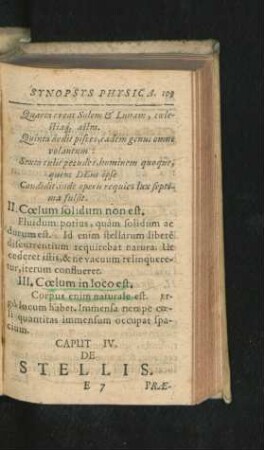 SYNOPSYS PHYSICA. 109
Quarta creat Solem & Lunam, cœle-
stiaq́, astra.
Quinta dedit pisces, eadem genus omne
volantum:
Sexta tulit pecudes, hominem quoque,
quem DEus ipse
Condidit, inde operis requies lux septi-
ma fulsit.
II. Cœlum solidum non est.
Fluidum potius, quàm solidum ac
durum est. Id enim stellarum liberè
discurrentium requirebat natura: Ut
cederet istis, & ne vacuum relinquere-
tur, iterum conflueret.
III. Cœlum in loco est.
Corpus enim naturale est. er-
gò locum habet. Immensa nempe cœ-
li quantitas immensum occupat spa-
cium.
CAPUT IV.
DE
STELLIS.
E 7 PRÆ-